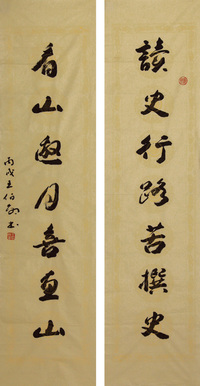 讀史行路苦撰史
看山邀月喜畫山
丙戌王伯敏書